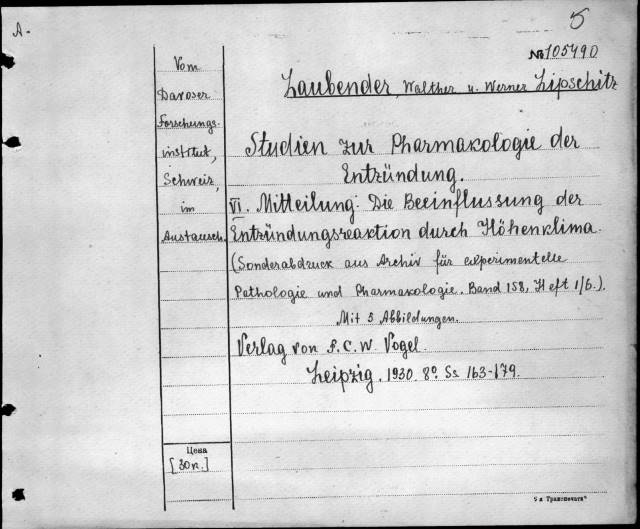 A-
5
№ 105490
Vom
Davoser
Forschungs-
institut,
Schweiz,
im
Austausch.
Laubender, Walther u. Werner Lipschitz
Studien zur Pharmakologie der
Entzündung.
VI. Mitteilung: Die Beeinflussung der
Entzündungsreaktion durch Höhenklima.
(Sonderabdruck aus Archiv für experimentelle
Pathologie und Pharmakologie. Band 158, Heft 1/6.).
Mit 5 Abbildungen.
Verlag von F. C. W. Vogel.
Leipzig. 1930. 8º. Ss. 163-179.
Цена
[30 п.]
9 я Транспечати"